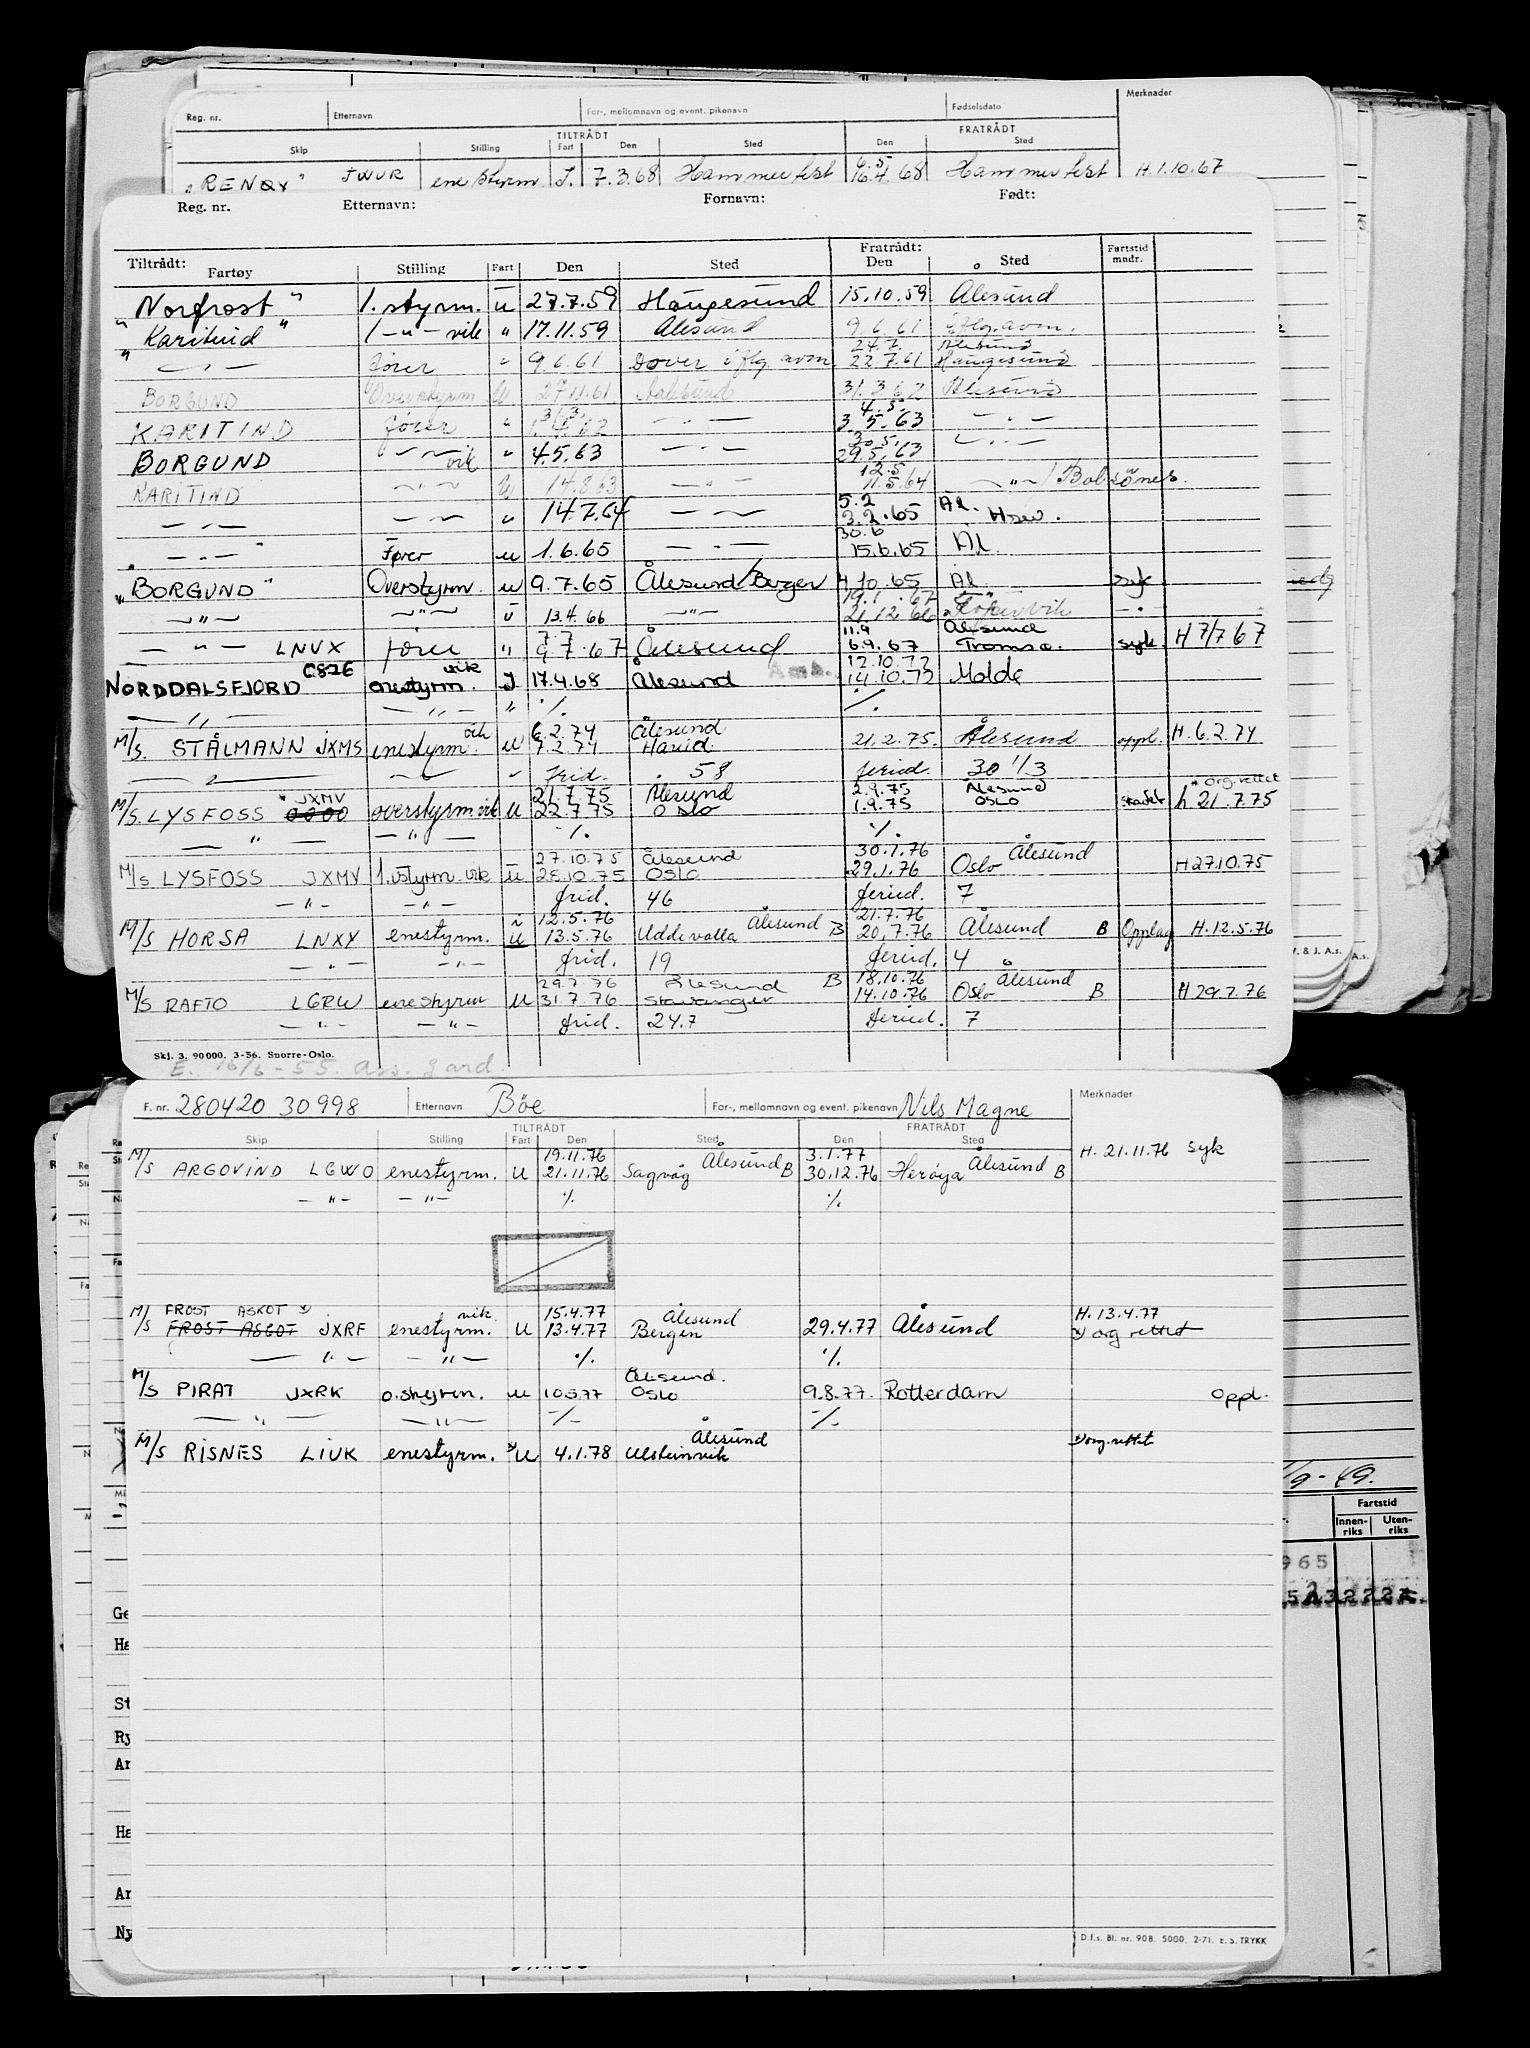 Reg. nr. Etternavn For-, mellomnavn og event. pikenavn Fødselsdato Merknader
TILTRÅDT FRATRÅDT
Skip Stilling Fart Den Sted Den Sted
"RENØY" JWUR ene styrm J. 7.3.68 Hammerfest 6.5 16.4.68 Hammerfest H.1.10.67
Reg. nr. Etternavn: Fornavn: Født:
Tiltrådt: Fratrådt:
Fartøy Stilling Fart Den Sted Den Sted Fartstid mndr.
Norfrost " 1. styrm. u 27.7.59 Haugesund 15.10.59 Ålesund
"Karitind " 1 -"- vik " 17.11.59 Ålesund 9.6.61 iflg. avm.
24.7. Ålesund
" -"- fører " 9.6.61 Dover iflg avm. 22.7.61 Haugesund
BORGUND Overstyrm U 27.11.61 Aalesund 31.3.62 Ålesund
31.3. 4.5.
KARITIND fører " 1.4.62 -"- 3.5.63 -"-
30.5.
BORGUND -"- vik " 4.5.63 -"- 29.5.63 -"-
12.5
KARITIND -"- U 14.8.63 -"- 11.5.64 -"- / Bolsönes.
5.2 Ål.
-"- -"- " 14.7.64 -"- 3.2.65
30.6
-"- Fører u 1.6.65 -"- 15.6.65 Ål.
"BORGUND" Overstyrm. u 9.7.65 Ålesund/Bergen 10.65 Ål syk
19.1.67
-"- -"- u 13.4.66 -"- 21.12.66 Kopervik -"-
7.7 11.9 Ålesund
-"- LNVX fører " 9.7.67 Ålesund 6.9.67 Tromsø. syk. H 7/7 67
12.10.72
NORDDALSFJORD enestyrm. vik J 17.4.68 Ålesund 14.10.72 Molde
-"- -"- " ./. ./.
6.2.74 Ålesund
M/S. STÅLMANN JXMS enestyrm. vik u 7.2.74 Hareid. 21.2.75. Ålesund oppl. H.6.2.74
-"- -"- " frid. 58 feried. 30 1/3
JXMV 21.7.75 Ålesund 2.9.75 Ålesund * org. rettet
M/S. LYSFOSS overstyrm. vik U 22.7.75 Oslo 1.9.75 OSLO h 21.7.75
-"- -"- ./. ./.
27.10.75 Ålesund 30.1.76 Ålesund
M/S LYSFOSS JXMV 1.styrm. vik u 28.10.75 OSLO 29.1.76 Oslo H 27.10.75
-"- -"- frid. 46 feried. 7
12.5.76 Ålesund 21.7.76
M/S HORSA LNXY enestyrm. u 13.5.76 Uddevalla B 20.7.76 Ålesund B Opplag H.12.5.76
-"- -"- frid. 19 feried. 4
29.7.76 Ålesund B 18.10.76 Ålesund
M/S RAFTO LGRW enestyrm U 31.7.76 Stavanger 14.10.76 Oslo B H 29.7.76
-"- -"- frid. 24.7 feried. 7
Skj. 3. 90000. 3-56. Snorre-Oslo.
E. 16/6-55. Ass. gard.
F. nr. 280420 30998 Etternavn Böe For-, mellomnavn og event. pikenavn Nils Magne Merknader
TILTRÅDT FRATRÅDT
Skip Stilling Fart Den Sted Den Sted
19.11.76 Ålesund 3.1.77 Ålesund H. 21.11.76 syk
M/S ARGOVIND LGWO enestyrm. U 21.11.76 Sagvåg B 30.12.76 Herøya B
-"- -"- ./. ./.
FROST ASKOT vik. 15.4.77 Ålesund H. 13.4.77
M/S FROST ASGOT JXRF enestyrm. U 13.4.77 Bergen 29.4.77 Ålesund org rettet
-"- -"- ./. ./.
Ålesund.
M/S PIRAT JXRK o.styrm. u 10.5.77 Oslo 9.8.77. Rotterdam oppl.
-"- -"- ./. ./.
Ålesund org. rettet
M/S RISNES LIUK enestyrm. U 4.1.78 Ulsteinvik
/9-49.
Fartstid
Innen-riks Uten-riks
965
Ge
Ha
St
Ry
Ar
Ha
Ar
Ny
D.f.s. Bl. nr. 908. 5000. 2-71. E.S. TRYKK